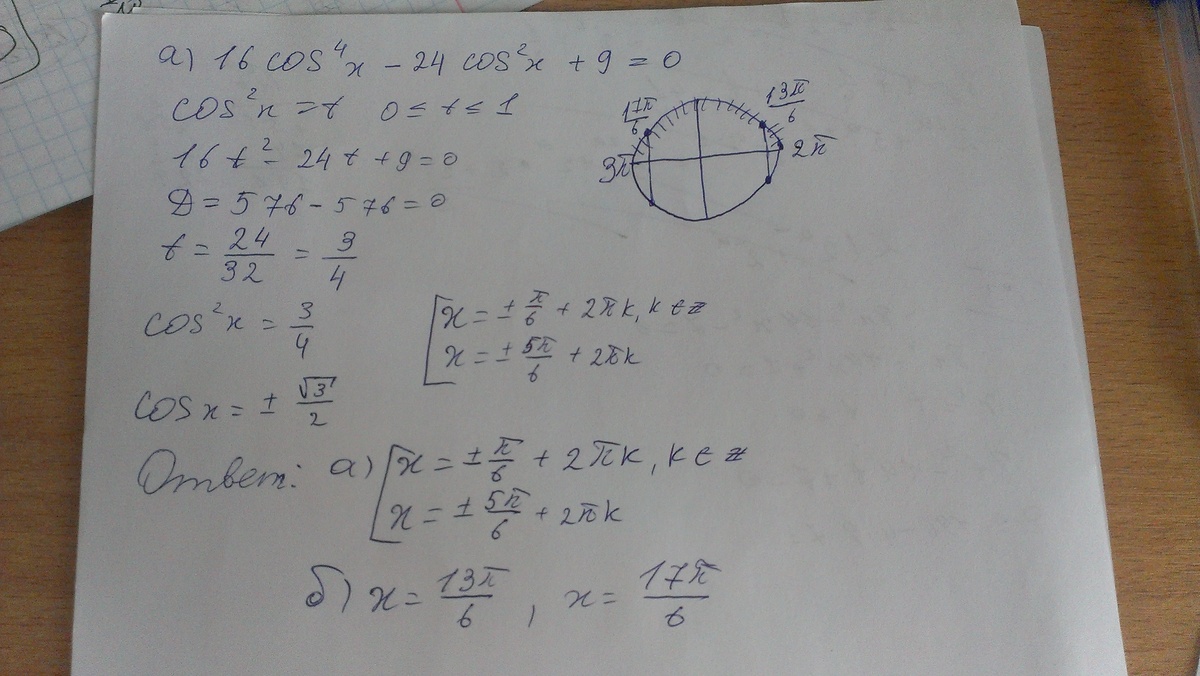 а) 16 cos⁴x − 24 cos²x + 9 = 0
cos²x = t   0 ≤ t ≤ 1
16t² − 24t + 9 = 0
D = 576 − 576 = 0
t = 24/32 = 3/4
cos²x = 3/4
cos x = ± √3/2
17π/6
13π/6
3π
2π
[ x = ± π/6 + 2πk, k ∈ z
x = ± 5π/6 + 2πk
Ответ: а) [ x = ± π/6 + 2πk, k ∈ z
x = ± 5π/6 + 2πk
б) x = 13π/6 , x = 17π/6